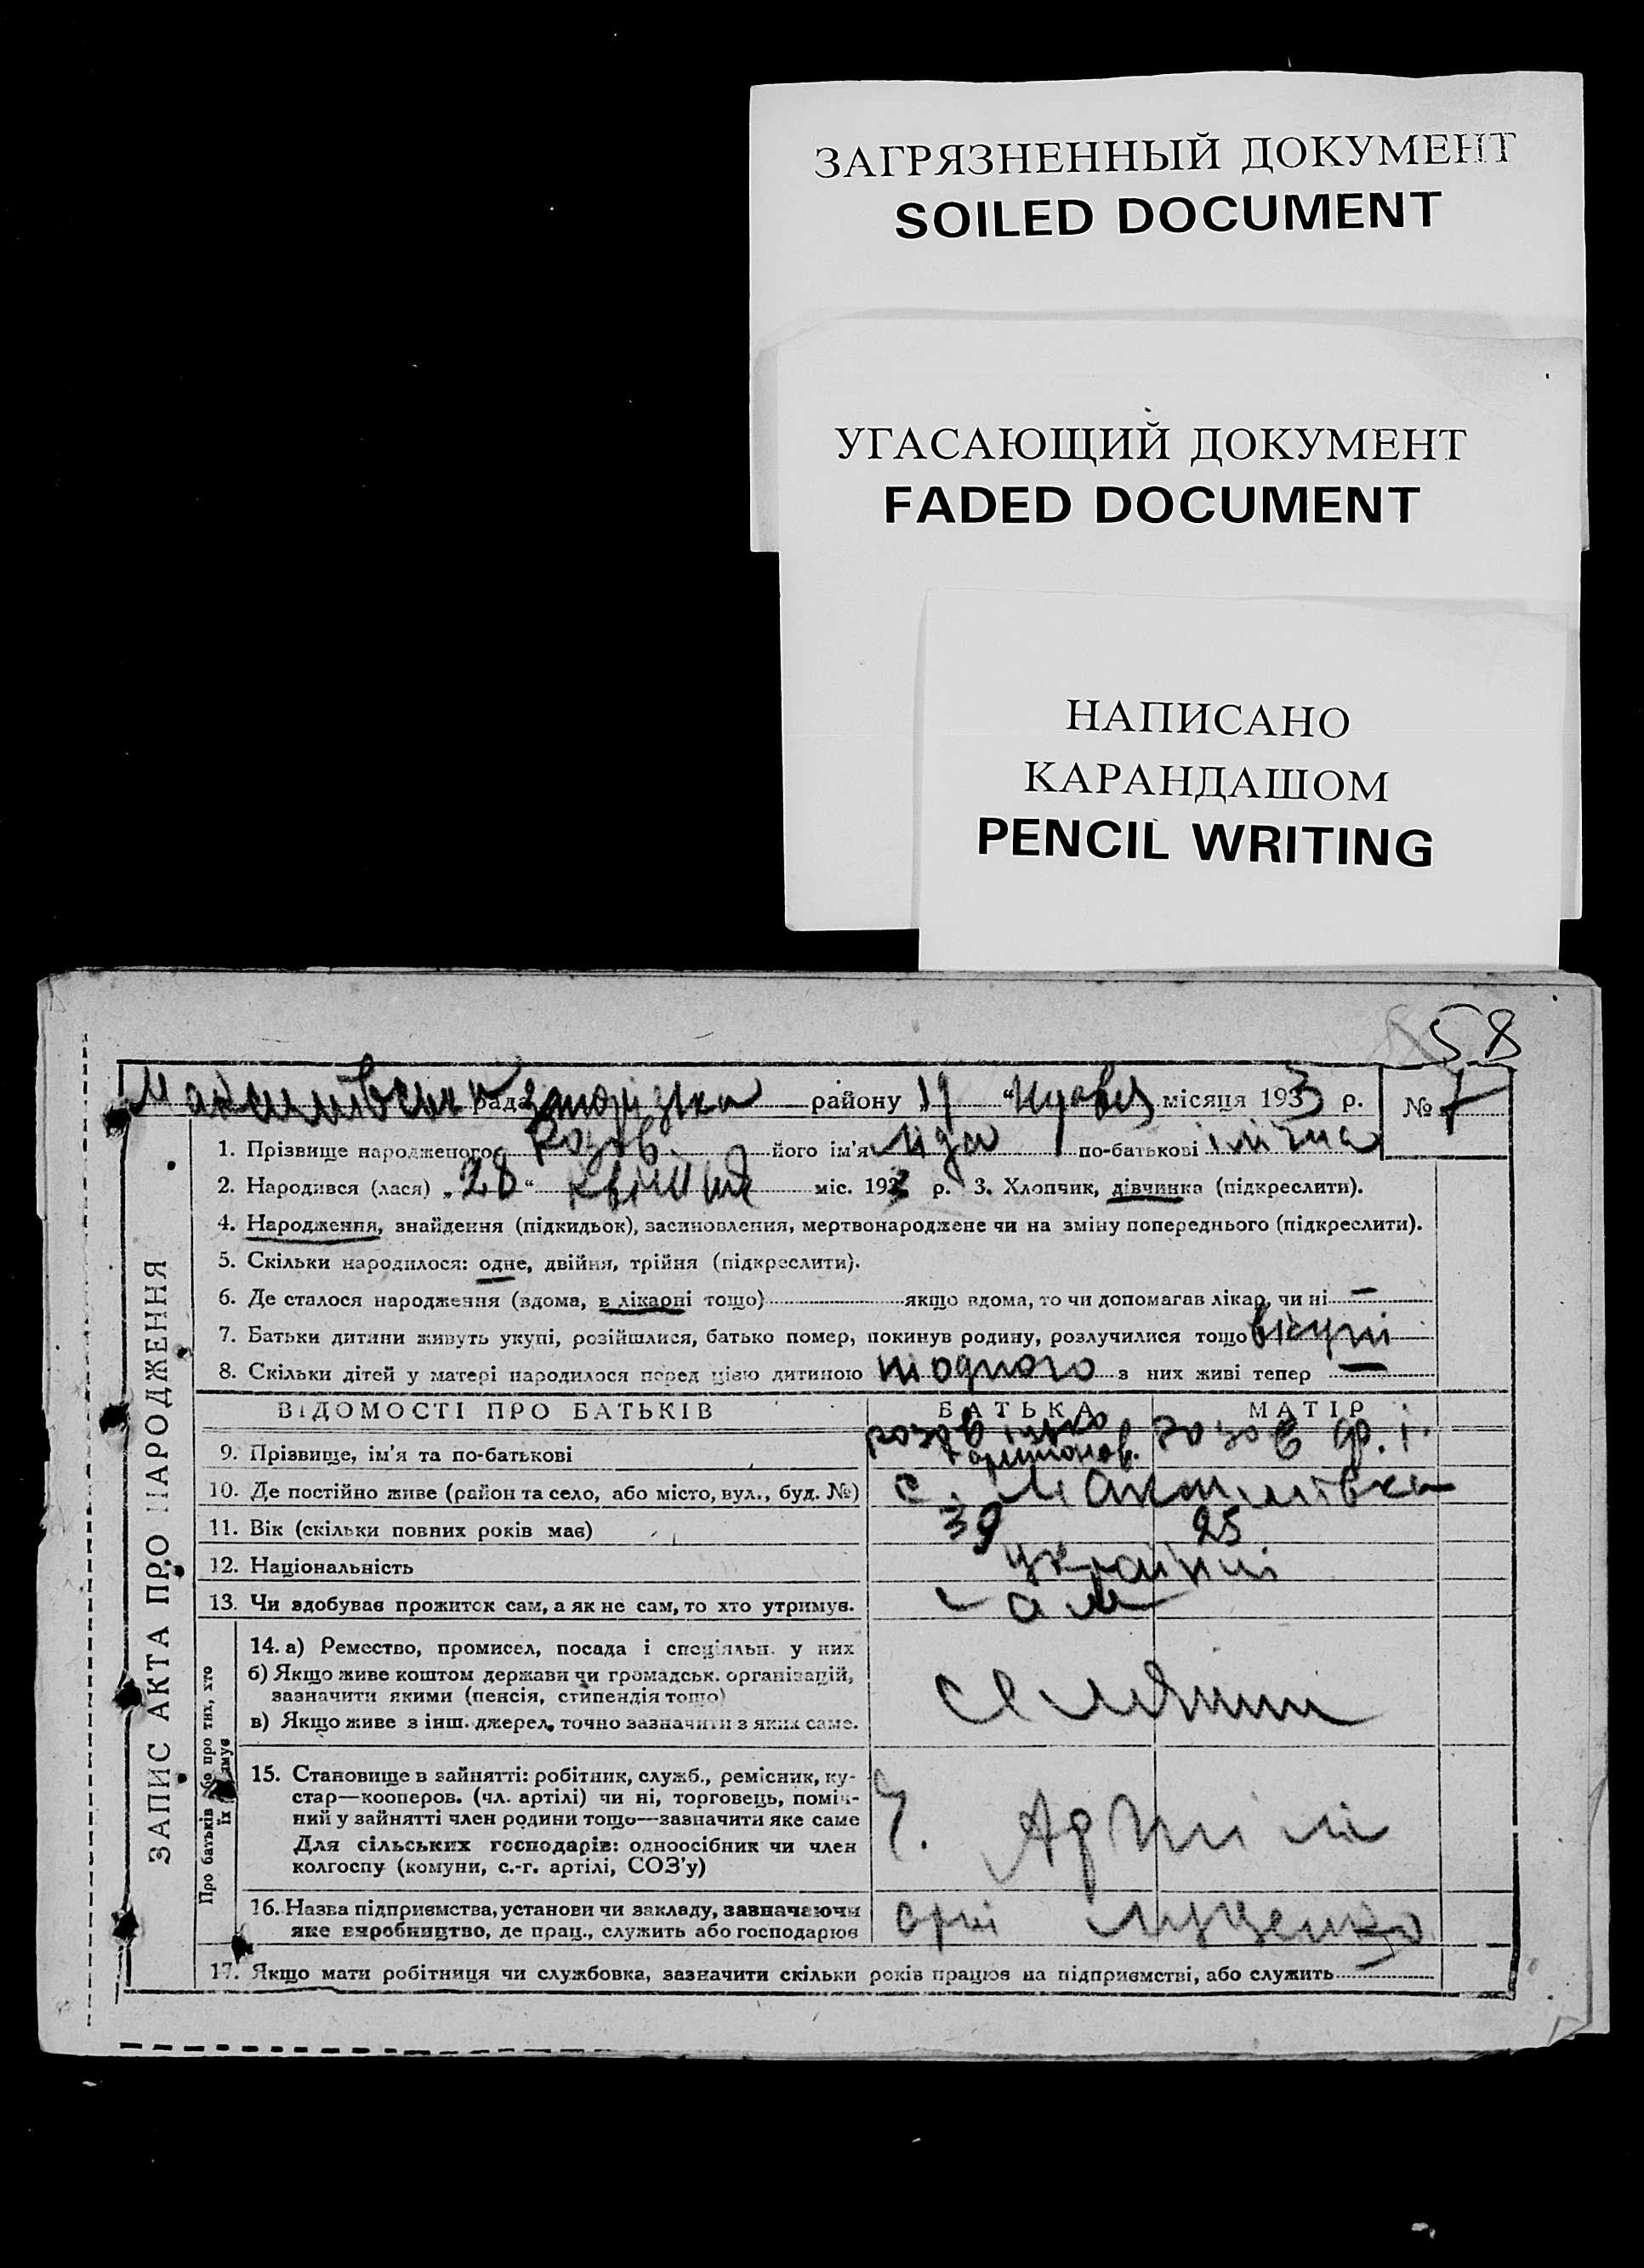 ЗАГРЯЗНЕННЫЙ ДОКУМЕНТ
SOILED DOCUMENT
УГАСАЮЩИЙ ДОКУМЕНТ
FADED DOCUMENT
НАПИСАНО
КАРАНДАШОМ
PENCIL WRITING
58
рада району „19“ місяця 1933 р. №7
1. Прізвище народженого Розов його ім'я Ліда по-батькові
2. Народився (лася) „28“ квітня міс. 193 р. 3. Хлопчик, дівчинка (підкреслити).
4. Народження, знайдення (підкидьок), засиновлення, мертвонароджене чи на зміну попереднього (підкреслити).
5. Скільки народилося: одне, двійня, трійня (підкреслити).
6. Де сталося народження (вдома, в лікарні тощо) якщо вдома, то чи допомагав лікар, чи ні —
7. Батьки дитини живуть укупі, розійшлися, батько помер, покинув родину, розлучилися тощо вкупі
8. Скільки дітей у матері народилося перед цією дитиною ні одного з них живі тепер —
ЗАПИС АКТА ПРО НАРОДЖЕННЯ
ВІДОМОСТІ ПРО БАТЬКІВ БАТЬКА МАТІР
9. Прізвище, ім'я та по-батькові розов розов ф. і.
10. Де постійно живе (район та село, або місто, вул., буд. №) с. Максимівка
11. Вік (скільки повних років має) 39 25
12. Національність українці
13. Чи здобуває прожиток сам, а як не сам, то хто утримує. сам
Про батьків або про тих, хто їх утримує
14. а) Ремество, промисел, посада і спеціяльн. у них
б) Якщо живе коштом держави чи громадськ. організацій,
зазначити якими (пенсія, стипендія тощо)
в) Якщо живе з інш. джерел, точно зазначити з яких саме.
селяни
15. Становище в зайнятті: робітник, служб., ремісник, ку-
стар—кооперов. (чл. артілі) чи ні, торговець, поміч-
ний у зайнятті член родини тощо—зазначити яке саме
Для сільських господарів: одноосібник чи член
колгоспу (комуни, с.-г. артілі, СОЗ'у)
16. Назва підприємства, установи чи закладу, зазначаючи
яке виробництво, де прац., служить або господарює
17. Якщо мати робітниця чи службовка, зазначити скільки років працює на підприємстві, або служить